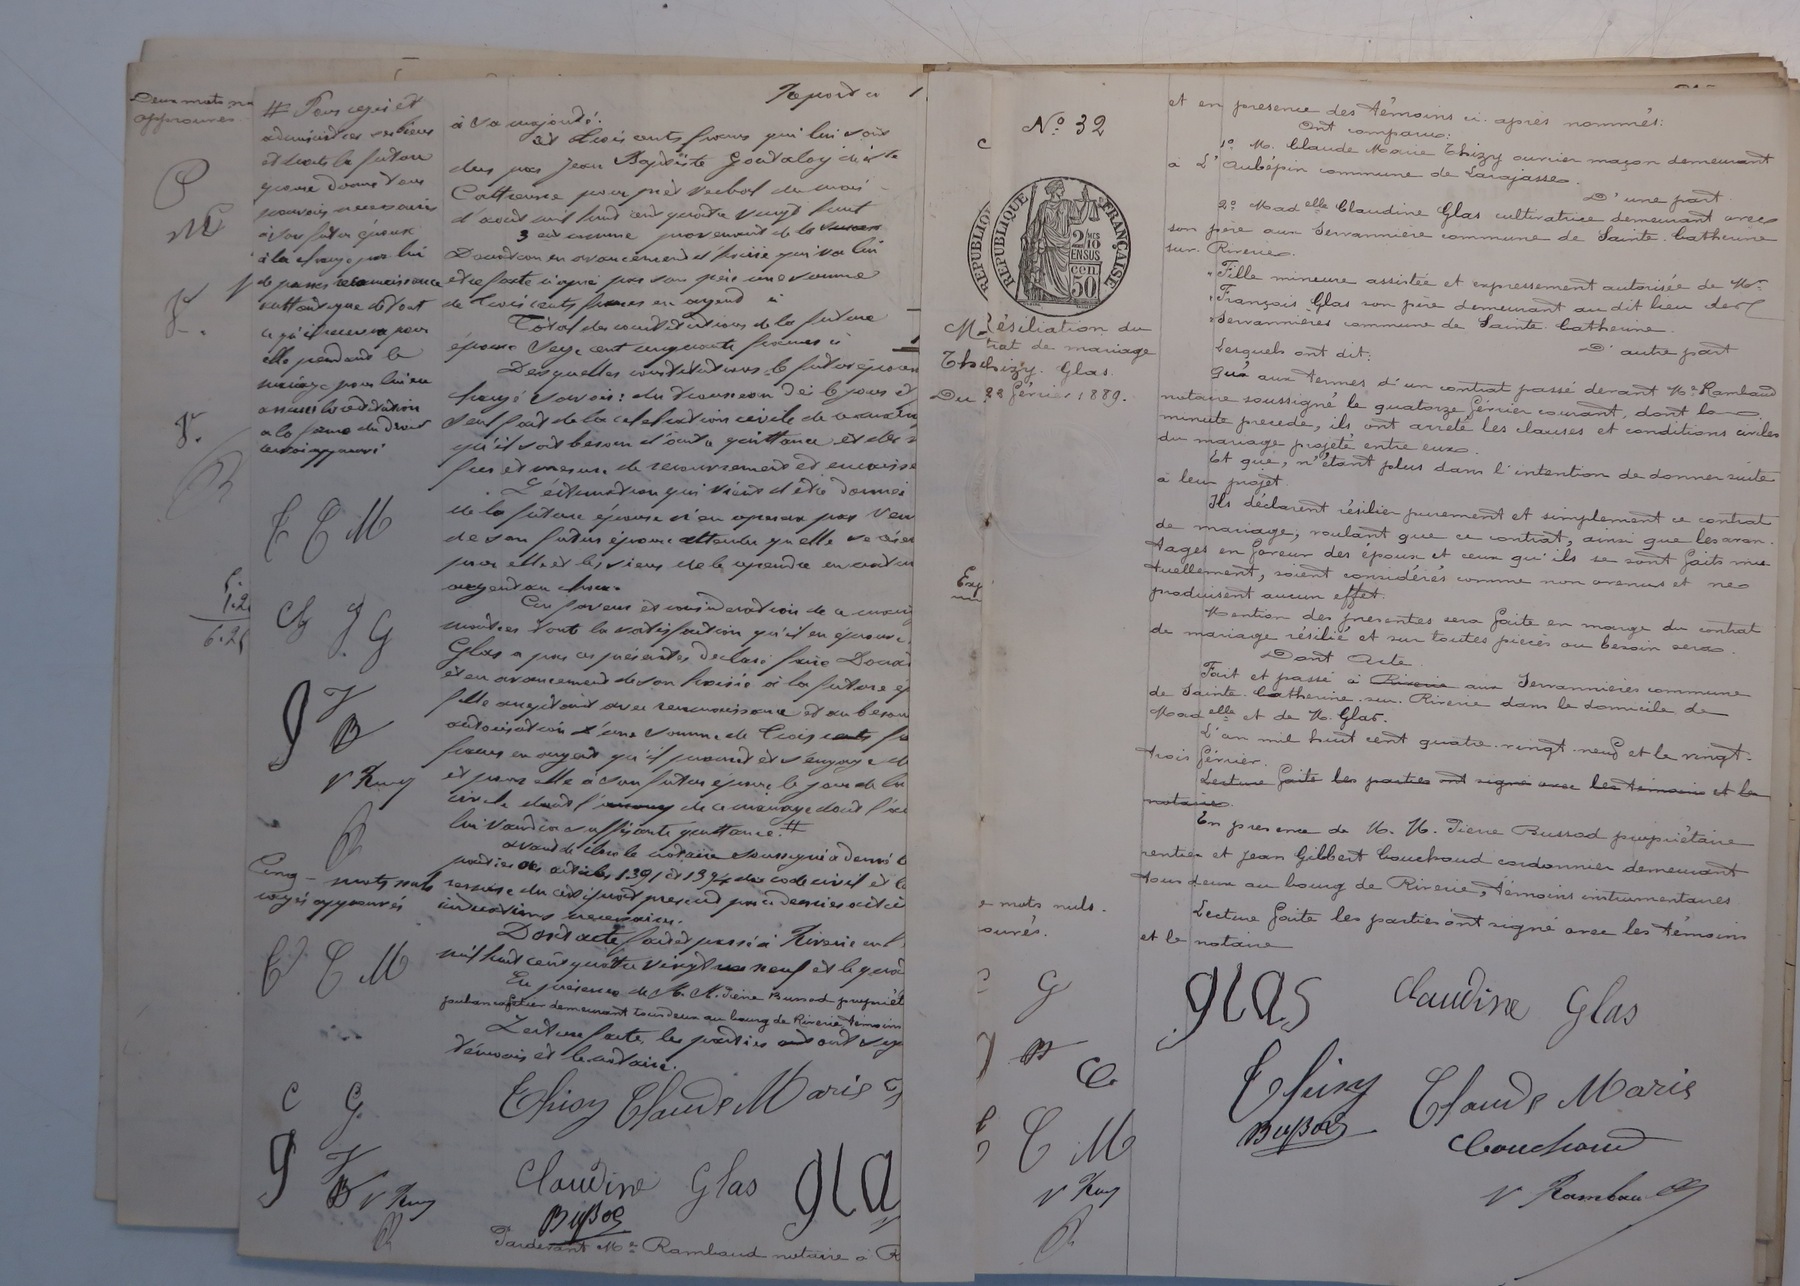 Deux mots
approuvés
# Pour régir et
administrer ses biens
et droits la future
épouse donne tous
pouvoirs nécessaires
à son futur époux
à la charge par lui
de passer reconnaissance
authentique de tout
ce qu'il recevra pour
elle pendant le
mariage pour lui en
assurer la restitution
à la forme du droit
renvoi approuvé
C C M
Cinq mots nuls
rayés approuvés
C C M
V Ray
Report ci 1.
à sa majorité.
3° trois cents francs qui lui sont
dus par Jean Baptiste
Catherine pour prêt verbal du mois
d'août mil huit cent quatre vingt huit
Donation en avancement d'hoirie que va lui
ci après par son père une somme
de trois cents francs en argent ci
Total des constitutions de la future
épouse Seize cent cinquante francs ci
Desquelles constitutions le futur époux
chargé savoir: du trousseau dès le jour et
seul fait de la célébration civile du mariage
qu'il soit besoin d'autre quittance et des
fur et mesure de recouvrement et encaisse
L'estimation qui vient d'être donnée
de la future épouse n'en opérera pas ven
de son futur époux attendu qu'elle se réser
pour elle et les siens de le reprendre en nature
argent au choix.
En faveur et considération de ce maria
montrer toute la satisfaction qu'il en éprouve
Glas a par ces présentes déclaré faire Donat
et en avancement de son hoirie à la future ép
fille acceptant avec reconnaissance et au besoin
autorisation d'une somme de Trois cents fr
francs en argent qu'il promet et s'engage de
et pour elle à son futur époux le jour de la
civile dont l' de ce mariage dont l'ac
lui vaudra suffisante quittance. #
Avant de clore le notaire soussigné a donné
parties des articles 1391 et 1394 du code civil et le
remise du certificat prescrit par ce dernier article
indications nécessaires.
Dont acte fait et passé à Riverie en l'
mil huit cent quatre vingt neuf et le quat
En présence de M. M. Pierre Bussod propriét
demeurant tous deux au bourg de Riverie, témoins
Lecture faite, les parties ont sig
témoins et le notaire.
Thizy Claude Marie
Claudine Glas gla
Bussod
Pardevant Me Rambaud notaire à R
N° 32
RÉPUBLIQUE FRANÇAISE
2/10 EN SUS
50 cen.
Résiliation du
trat de mariage
Thizy. Glas.
Du 22 février 1889.
Exp
mots nuls.
ouvés.
G
C M
V Ray
et en présence des témoins ci. après nommés:
Ont comparu:
1° M. Claude Marie Thizy ouvrier maçon demeurant
à L'Aubépin commune de Larajasse.
D'une part.
2° Mad elle Claudine Glas cultivatrice demeurant avec
son père aux Servannière commune de Sainte. Catherine
sur. Riverie.
"Fille mineure assistée et expressement autorisée de Mr.
"François Glas son père demeurant au dit lieu des
"Servannières commune de Sainte. Catherine.
D'autre part
Lesquels ont dit:
Qu'à aux termes d'un contrat passé devant Me Rambaud
notaire soussigné le quatorze février courant, dont la
minute précède, ils ont arrêté les clauses et conditions civiles
du mariage projeté entre eux.
Et que, n'étant plus dans l'intention de donner suite
à leur projet.
Ils déclarent résilier purement et simplement ce contrat
de mariage, voulant que ce contrat, ainsi que les avan.
tages en faveur des époux et ceux qu'ils se sont faits mu
tuellement, soient considérés comme non avenus et ne
produisent aucun effet.
Mention des présentes sera faite en marge du contrat
de mariage résilié et sur toutes pièces au besoin sera.
Dont Acte.
Fait et passé à Riverie aux Servannières commune
de Sainte. Catherine. sur. Riverie dans le domicile de
Mad elle et de M. Glas.
L'an mil huit cent quatre. vingt. neuf et le vingt.
trois février.
Lecture faite les parties ont signé avec les témoins et le
notaire.
En présence de M. M. Pierre Bussod propriétaire
rentier et Jean Gilbert Couchoud cordonnier demeurant
tous deux au bourg de Riverie, témoins instrumentaires
Lecture faite les parties ont signé avec les témoins
et le notaire
glas Claudine Glas
Thizy Claude Marie
Bussod Couchoud
V Rambaud